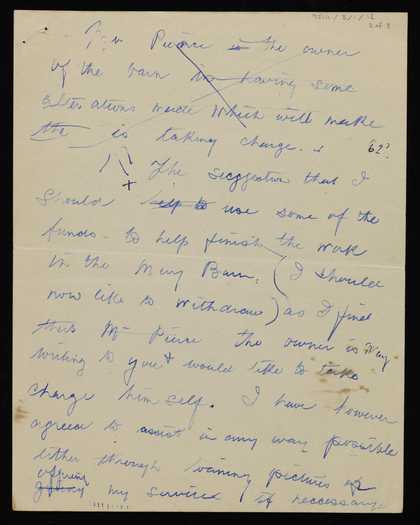 2 of 3
Mr Pierce is the owner
of the barn is having some
alterations made which will make
the is taking charge.
62?
The suggestion that I
should help to use some of the
funds - to help finish the work
in the Merz Barn, (I should
now like to withdraw) as I find
that Mr Pierce the owner is
writing to you + would like to take
charge himself. I have however
agreed to assist in any way possible
either through loaning pictures or
offering my services if neccessary.